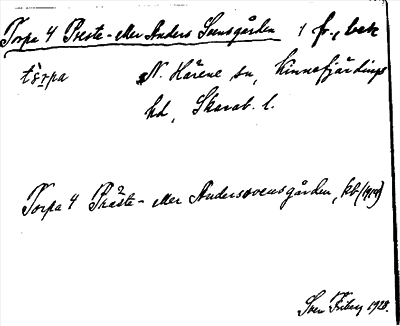 Torpa 4 Preste- eller Anders Svensgården 1 fr., bek
tɷrpa N. Härene sn, Kinnefjärdings
hd, Skarab. l.
Torpa 4 Präste- eller Anderssvensgården, kb
Sven Friberg 1928.